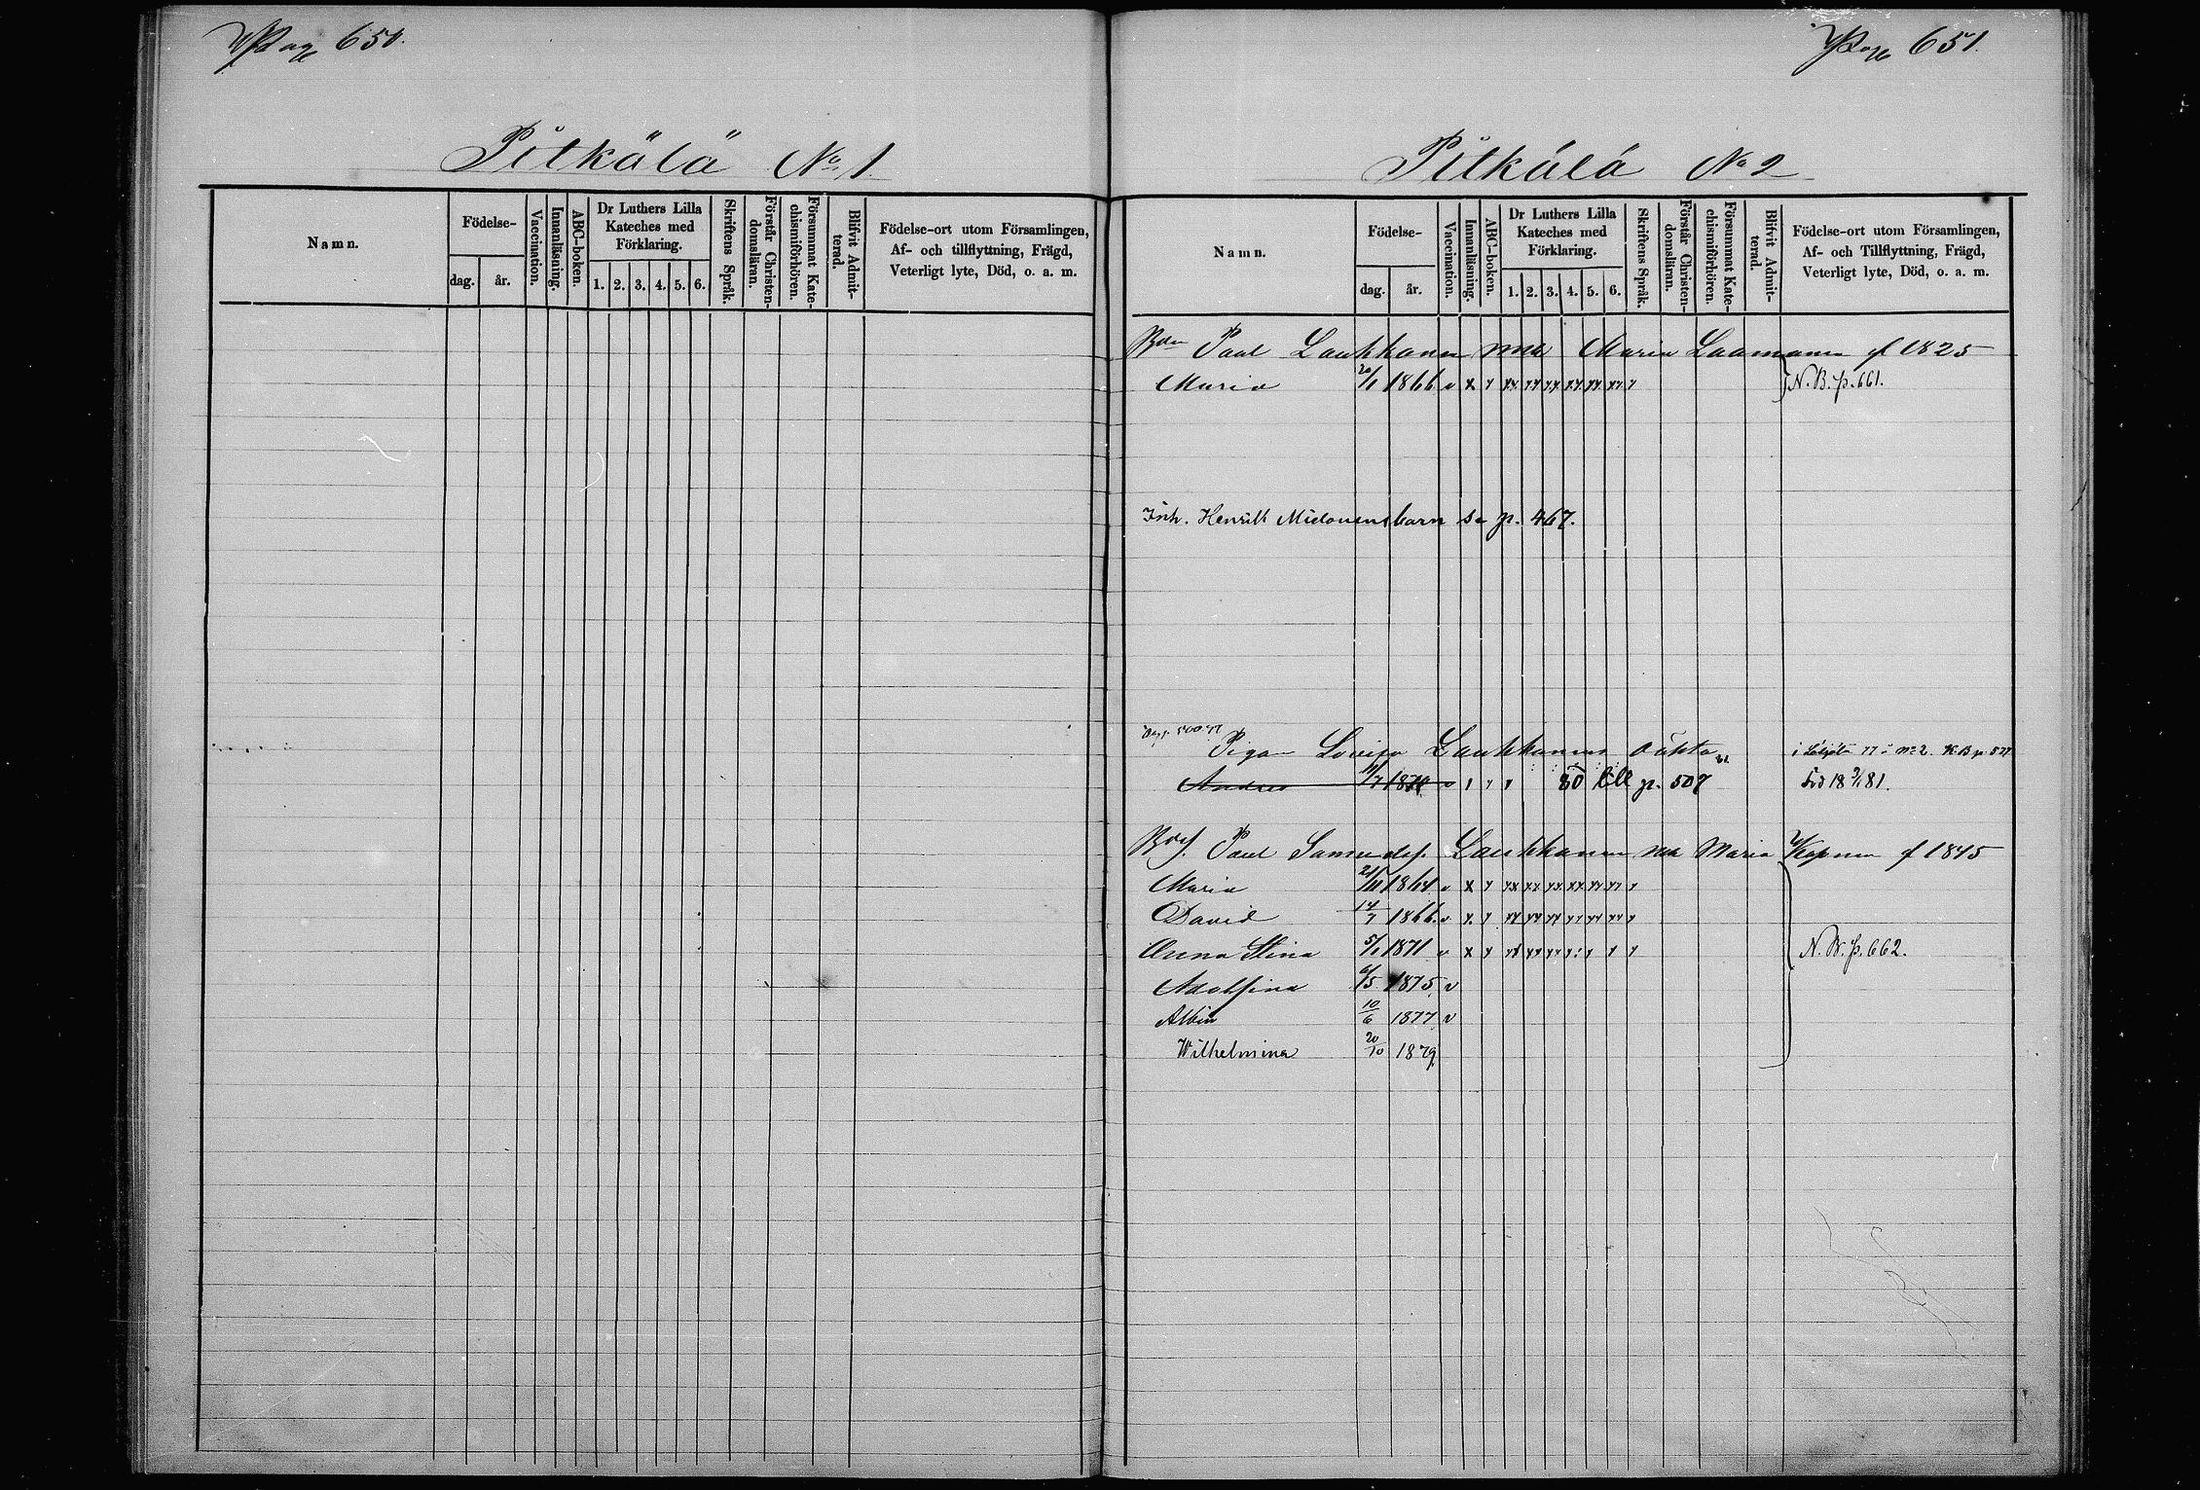 Pag 650.
Pitkälä No 1.
Namn.
Födelse-
dag.
år.
Vaccination.
Innanläsning.
ABC-boken.
Dr Luthers Lilla
Kateches med
Förklaring.
1. 2. 3. 4. 5. 6.
Skriftens Språk.
Förstår Christen-
domsläran.
Försummat Kate-
chismiförhören.
Blifvit Admit-
terad.
Födelse-ort utom Församlingen,
Af- och tillflyttning, Frägd,
Veterligt lyte, Död, o. a. m.
Pag 651.
Pitkälä No 2
Namn.
Födelse-
dag.
år.
Vaccination.
Innanläsning.
ABC-boken.
Dr Luthers Lilla
Kateches med
Förklaring.
1. 2. 3. 4. 5. 6.
Skriftens Språk.
Förstår Christen-
domsläran.
Försummat Kate-
chismiförhören.
Blifvit Admit-
terad.
Födelse-ort utom Församlingen,
Af- och Tillflyttning, Frägd,
Veterligt lyte, Död, o. a. m.
Paul Laukkanen Maria Laamanen f 1825
Maria 20/1 1866 v N. B. p. 661.
Inh. Henrik barn se p. 467.
Pigan Lovisa Laukkanens oäkta
Andreas 11/7 1870 v p. 507 Död 18 81.
Paul Samuelsf. Laukkanen Maria f 1845
Maria 1864 v
David 14/7 1866 v
Anna Stina 5/1 1871 v N. B. p. 662.
Adolfina 6/5 1875 v
Albin 10/6 1877 v
Wilhelmina 20/10 1879